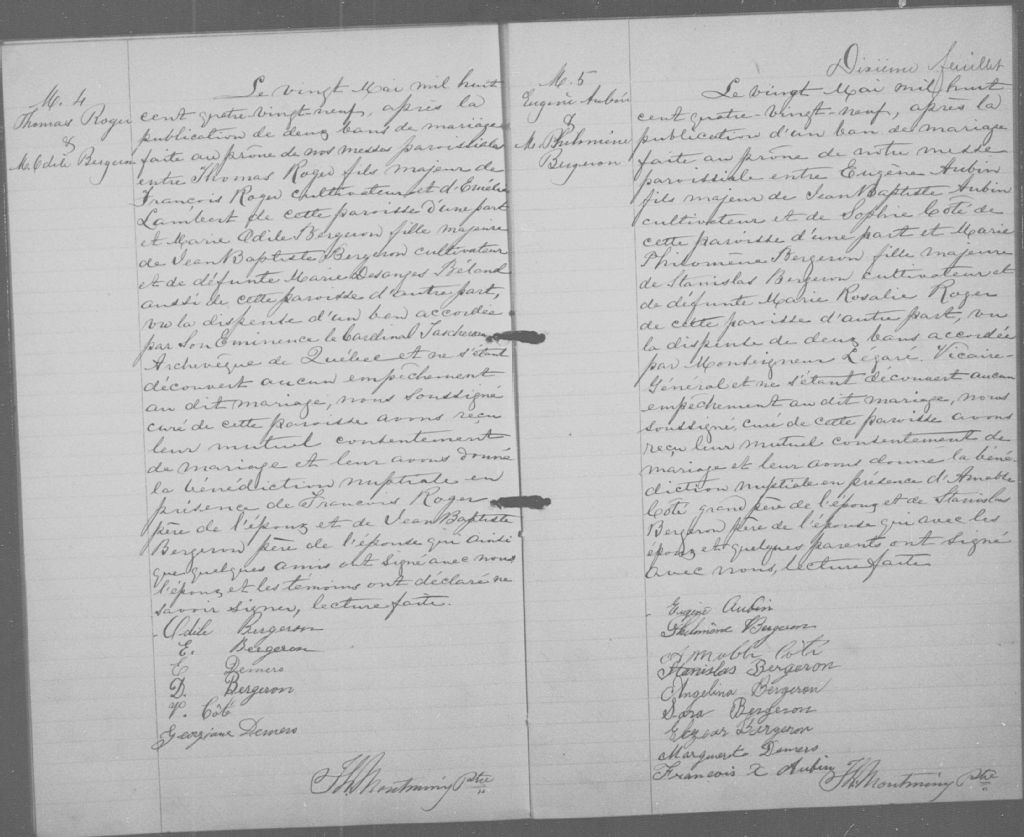 M. 4
Thomas Roger
&
M. Odile Bergeron
Le vingt Mai mil huit
cent quatre-vingt-neuf, après la
publication de deux bans de mariage
faite au prône de nos messes paroissiales
entre Thomas Roger fils majeur de
François Roger cultivateur et d'Emélie
Lambert de cette paroisse d'une part
et Marie Odile Bergeron fille majeure
de Jean Baptiste Bergeron cultivateur
et de défunte Marie Desanges Béland
aussi de cette paroisse d'autre part,
vu la dispense d'un ban accordée
par Son Eminence le Cardinal Taschereau
Archevêque de Québec et ne s'étant
découvert aucun empêchement
au dit mariage, nous soussigné
curé de cette paroisse avons reçu
leur mutuel consentement
de mariage et leur avons donné
la bénédiction nuptiale en
présence de François Roger
père de l'époux et de Jean Baptiste
Bergeron père de l'épouse qui ainsi
que quelques amis ont signé avec nous
l'époux et les témoins ont déclaré ne
savoir signer, lecture faite.
Odile Bergeron
E. Bergeron
E Demers
D. Bergeron
V. Côté
Georgiana Demers
Th. Montminy Ptre
Dixième feuillet
M. 5
Eugène Aubin
&
M. Philomène
Bergeron
Le vingt Mai mil huit
cent quatre-vingt-neuf, après la
publication d'un ban de mariage
faite au prône de notre messe
paroissiale entre Eugène Aubin
fils majeur de Jean Baptiste Aubin
cultivateur et de Sophie Côté de
cette paroisse d'une part et Marie
Philomène Bergeron fille majeure
de Stanislas Bergeron cultivateur et
de défunte Marie Rosalie Roger
de cette paroisse d'autre part, vu
la dispense de deux bans accordée
par Monseigneur Légaré Vicaire-
Général et ne s'étant découvert aucun
empêchement au dit mariage, nous
soussigné, curé de cette paroisse avons
reçu leur mutuel consentement de
mariage et leur avons donné la béné-
diction nuptiale en présence d'Amable
Côté grand père de l'époux et de Stanislas
Bergeron père de l'épouse qui avec les
époux et quelques parents ont signé
avec nous, lecture faite
Eugène Aubin
Philomène Bergeron
Amable Côté
Stanislas Bergeron
Angelina Bergeron
Sara Bergeron
Elzear Bergeron
Marguerite Demers
Francois X Aubin
Th. Montminy Ptre